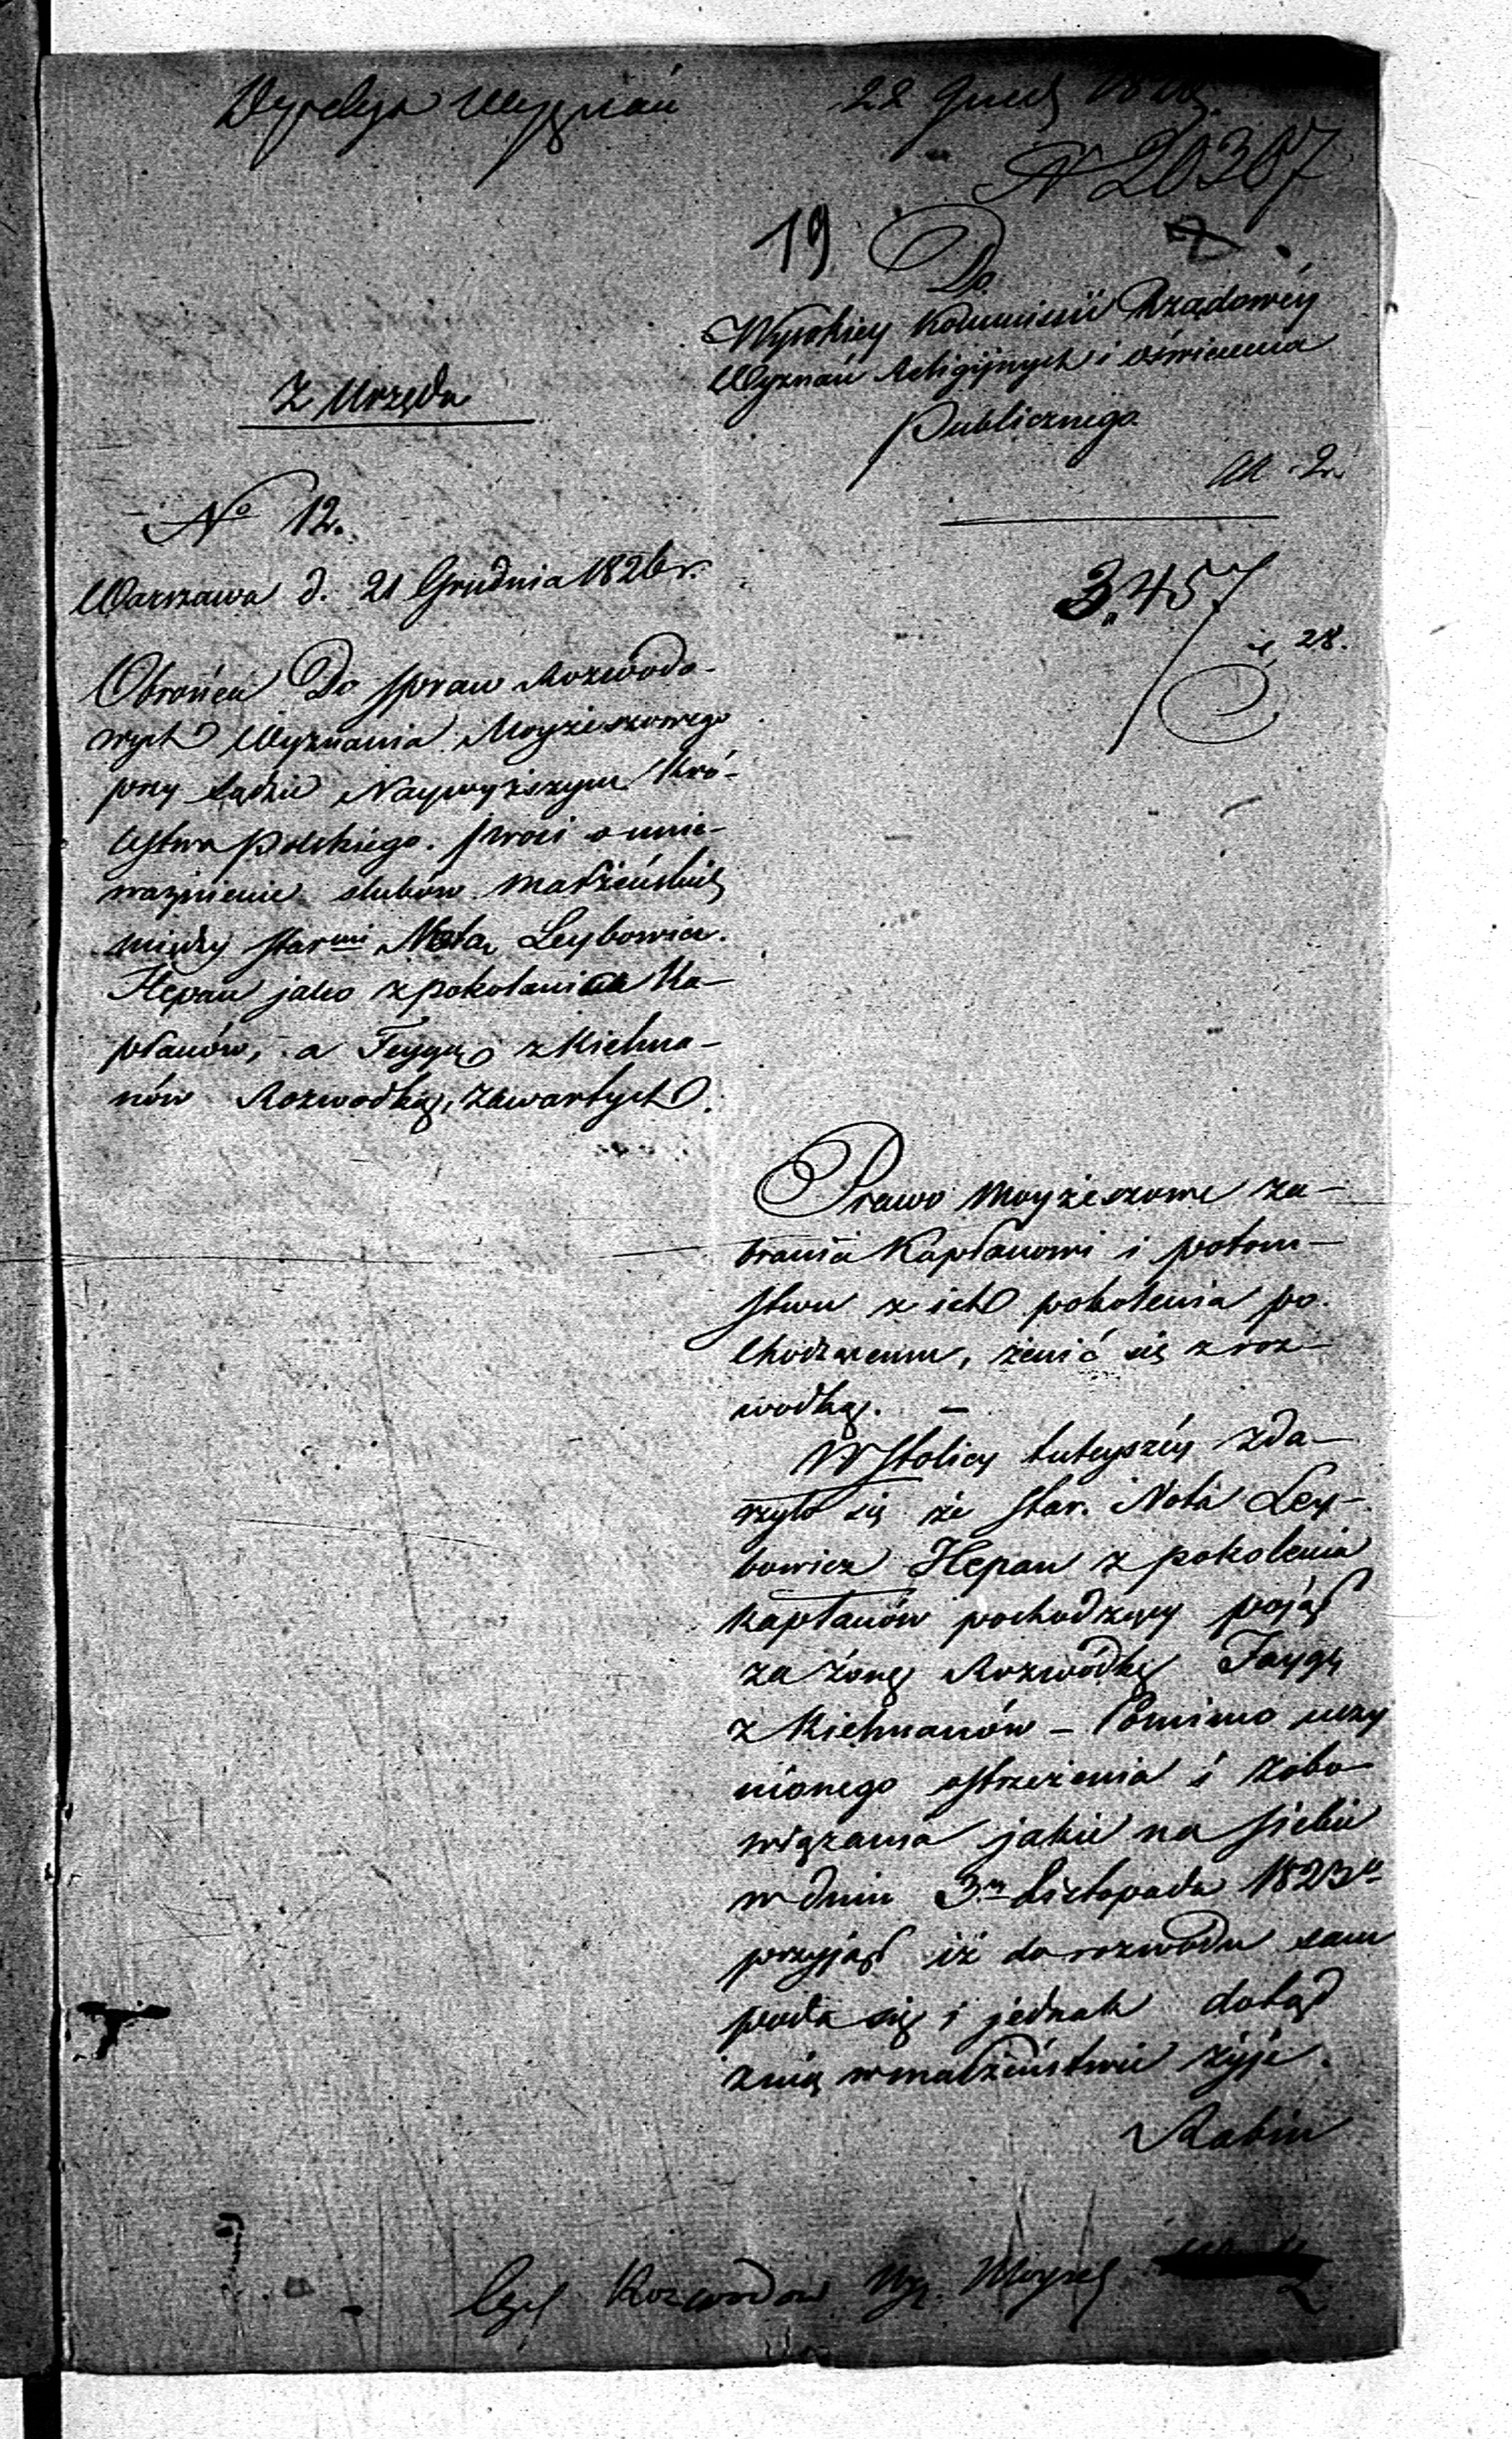 Wyznań 22 1826
N 20307
19 Do
Wysokiey Kommissii Rządowéy
Wyznań Religijnych i oświecenia
Publicznego
Z Urzędu
No 12.
Warszawa d. 21 Grudnia 1826 r.
3,457
28.
Obrońca Do spraw Rozwodo-
wych Wyznania Moyżeszowego
przy Sądzie Naywyższym Kró-
lestwa Polskiego. prosi o unie-
ważnienie slubów małżeńskich
między starmi Notą Leybowicz.
Hepan jako z pokolenia Ka-
płanów, a Feygą z Kielma-
nów Rozwodką, zawartych.
Prawo Moyżeszowe za-
brania Kapłanowi i potom-
stwu z ich pokolenia po-
chodzącemu, żenić się z roz-
wodką. –
W Stolicy tuteyszéy zda-
rzyło się że star. Nota Ley-
bowicz Hepan z pokolenia
kapłanów pochodzący pojął
za żonę Rozwódkę Faygę
z Kielmanów – Pomimo uczy
nionego ostrzeżenia i zobo-
wiązania jakie na siebie
w dniu 3m Listopada 1823 r
przyjął iż do rozwodu sam
poda się i jednak dotąd
z nią w małżeństwie żyje.
Rabin
Rozwodow Wyz. Moyżesz